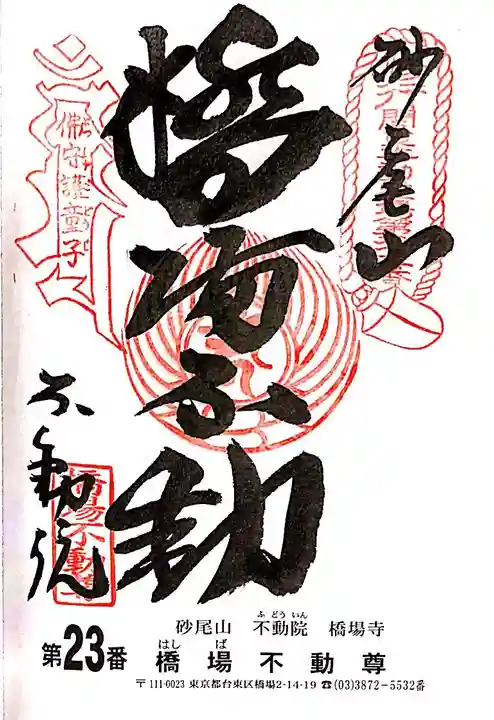 砂尾山
橋場不動
不動院
橋場不動尊
砂尾山 不動院 橋場寺
ふどういん
第23番 橋場不動尊
はしば
〒111-0023 東京都台東区橋場2-14-19 ☎(03)3872-5532番